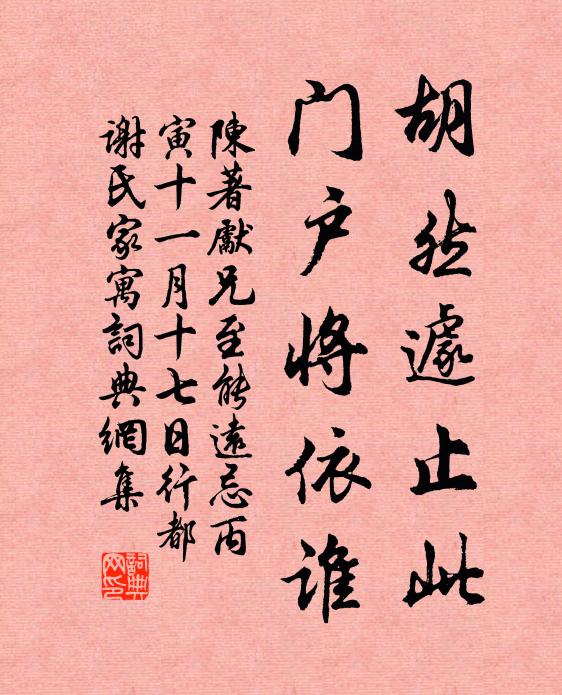 胡然遽止此
门户将依谁
陳著獻兄至能遠忌丙
寅十一月十七日行都
谢氏家寓詞典網集
詞典網印